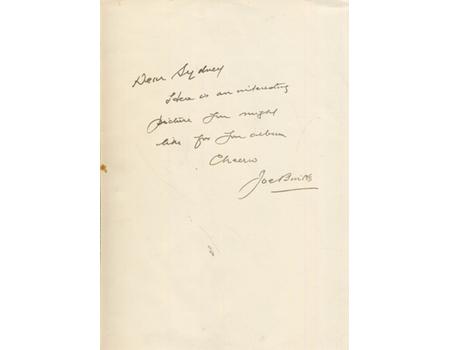 Dear Sydney
Here is an interesting
picture you might
like for your album
Cheerio
Joe